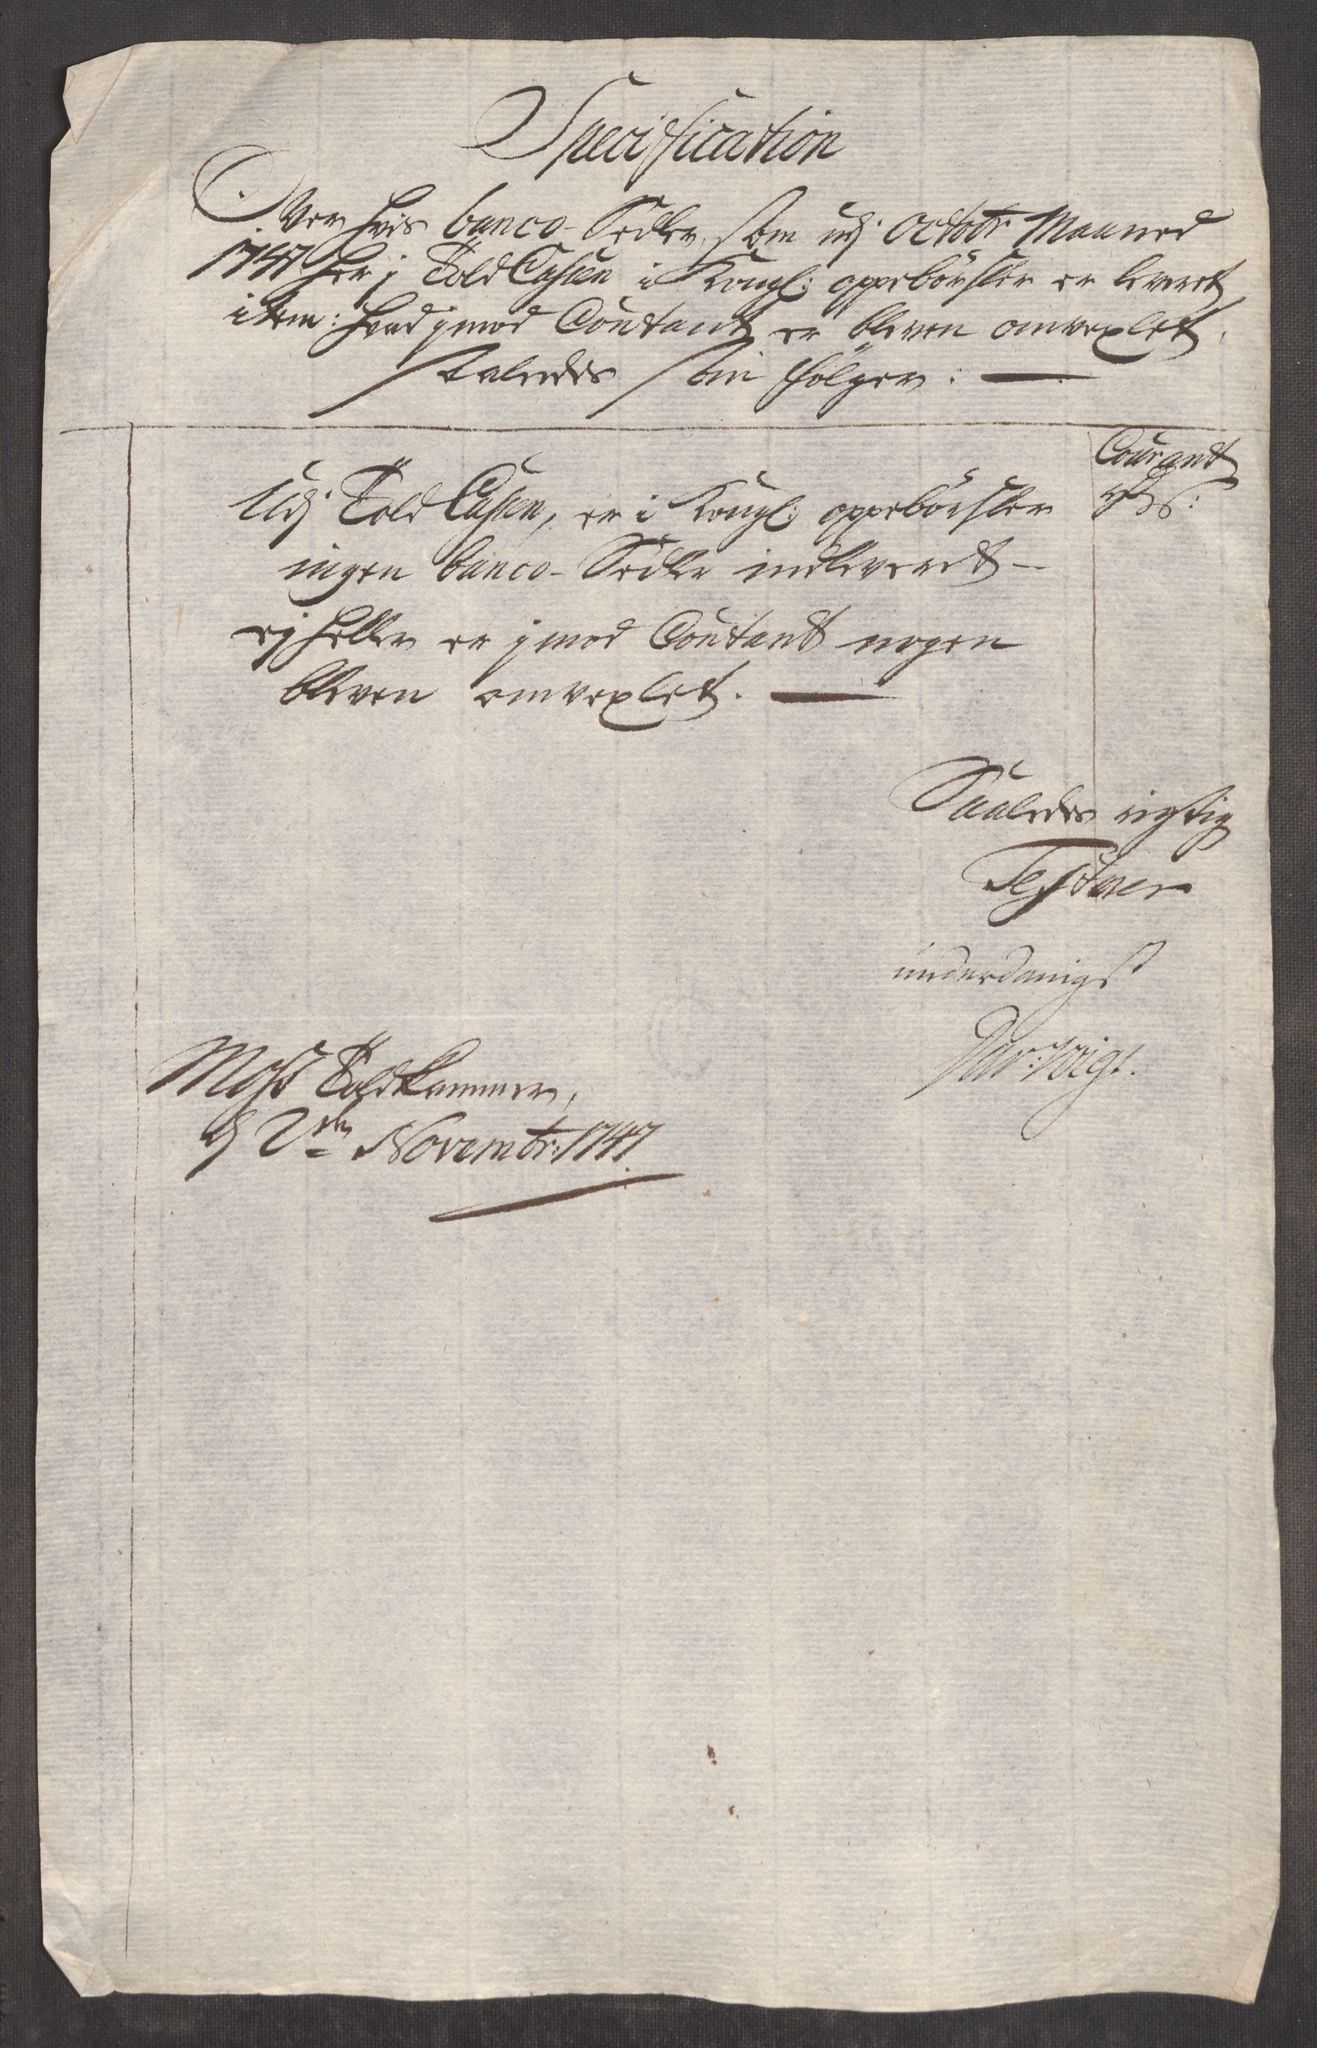 Specification
Over hvis banco-Sedler, som udj Octobr: Maaned
1747 her j Told Cassen i Kongl: oppebörsler er leveret,
item: hvad jmod Contant er bleven omvexlet,
saaledes som fölger:
Courant
Udj Told Cassen, er i Kongl: oppebörsler
ingen banco-Sedler indleveret
ej heller er jmod Contant nogen
bleven omvexlet.
Saaledes rigtig
Testerer
underdanigst
Moss Toldkammer,
d 2den Novembr: 1747